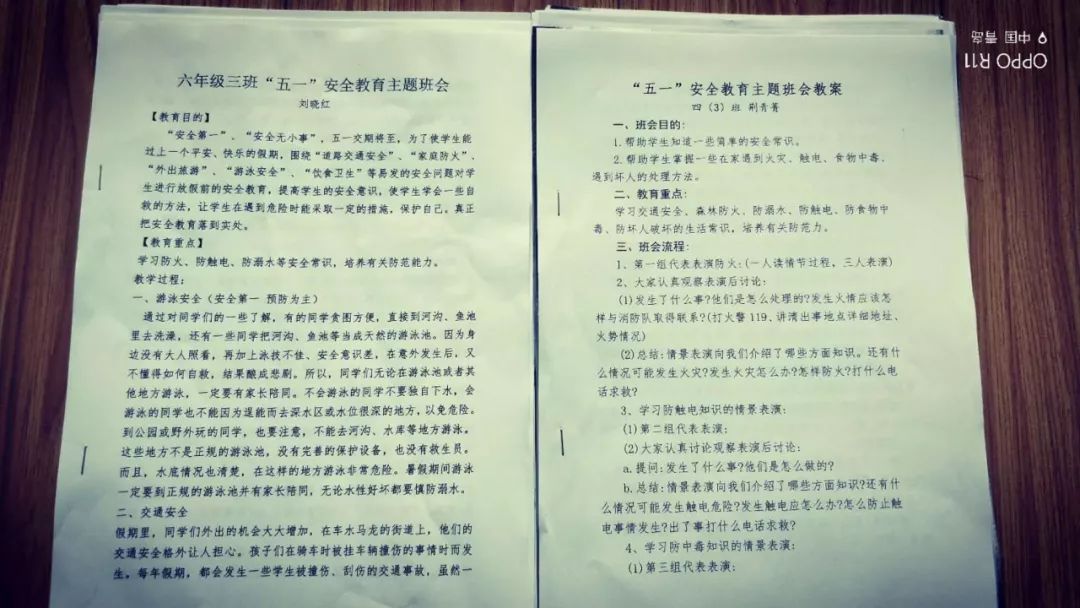 六年级三班“五一”安全教育主题班会
刘晓红
【教育目的】
“安全第一”、“安全无小事”,五一交期将至,为了使学生能
过上一个平安、快乐的假期,围绕“道路交通安全”、“家庭防火”、
“外出旅游”、“游泳安全”、“饮食卫生”等易发的安全问题对学
生进行放假前的安全教育,提高学生的安全意识,使学生学会一些自
救的方法,让学生在遇到危险时能采取一定的措施,保护自己。真正
把安全教育落到实处。
【教育重点】
学习防火、防触电、防溺水等安全常识,培养有关防范能力。
教学过程:
一、游泳安全(安全第一 预防为主)
通过对同学们的一些了解,有的同学贪图方便,直接到河沟、鱼池
里去洗澡,还有一些同学把河沟、鱼池等当成天然的游泳池。因为身
边没有大人照看,再加上泳技不佳、安全意识差,在意外发生后,又
不懂得如何自救,结果酿成悲剧。所以,同学们无论在游泳池或者其
他地方游泳,一定要有家长陪同。不会游泳的同学不要独自下水,会
游泳的同学也不能因为逞能而去深水区或水位很深的地方,以免危险。
到公园或野外玩的同学,也要注意,不能去河沟、水库等地方游泳。
这些地方不是正规的游泳池,没有完善的保护设备,也没有救生员。
而且,水底情况也清楚,在这样的地方游泳非常危险。暑假期间游泳
一定要到正规的游泳池并有家长陪同,无论水性好坏都要慎防溺水。
二、交通安全
假期里,同学们外出的机会大大增加,在车水马龙的街道上,他们的
交通安全格外让人担心。孩子们在骑车时被挂车辆撞伤的事情时而发
生。每年假期,都会发生一些学生被撞伤、刮伤的交通事故,虽然一
“五一”安全教育主题班会教案
四(3)班 荆青菁
一、班会目的:
1.帮助学生知道一些简单的安全常识。
2.帮助学生掌握一些在家遇到火灾、触电、食物中毒、
遇到坏人的处理方法。
二、教育重点:
学习交通安全、森林防火、防溺水、防触电、防食物中
毒、防坏人破坏的生活常识,培养有关防范力。
三、班会流程:
1、第一组代表表演防火:(一人读情节过程,三人表演)
2、大家认真观察表演后讨论:
(1)发生了什么事?他们是怎么处理的?发生火情应该怎
样与消防队取得联系?(打火警119、讲清出事地点详细地址、
火势情况)
(2)总结:情景表演向我们介绍了哪些方面知识。还有什
么情况可能发生火灾?发生火灾怎么办?怎样防火?打什么电
话求救?
3、学习防触电知识的情景表演:
(1)第二组代表表演:
(2)大家认真讨论观察表演后讨论:
a.提问:发生了什么事?他们是怎么做的?
b.总结:情景表演向我们介绍了哪些方面知识?还有什
么情况可能发生触电危险?发生触电应怎么办?怎么防止触
电事情发生?出了事打什么电话求救?
4、学习防中毒知识的情景表演:
(1)第三组代表表演:
OPPO R11
中国 青岛